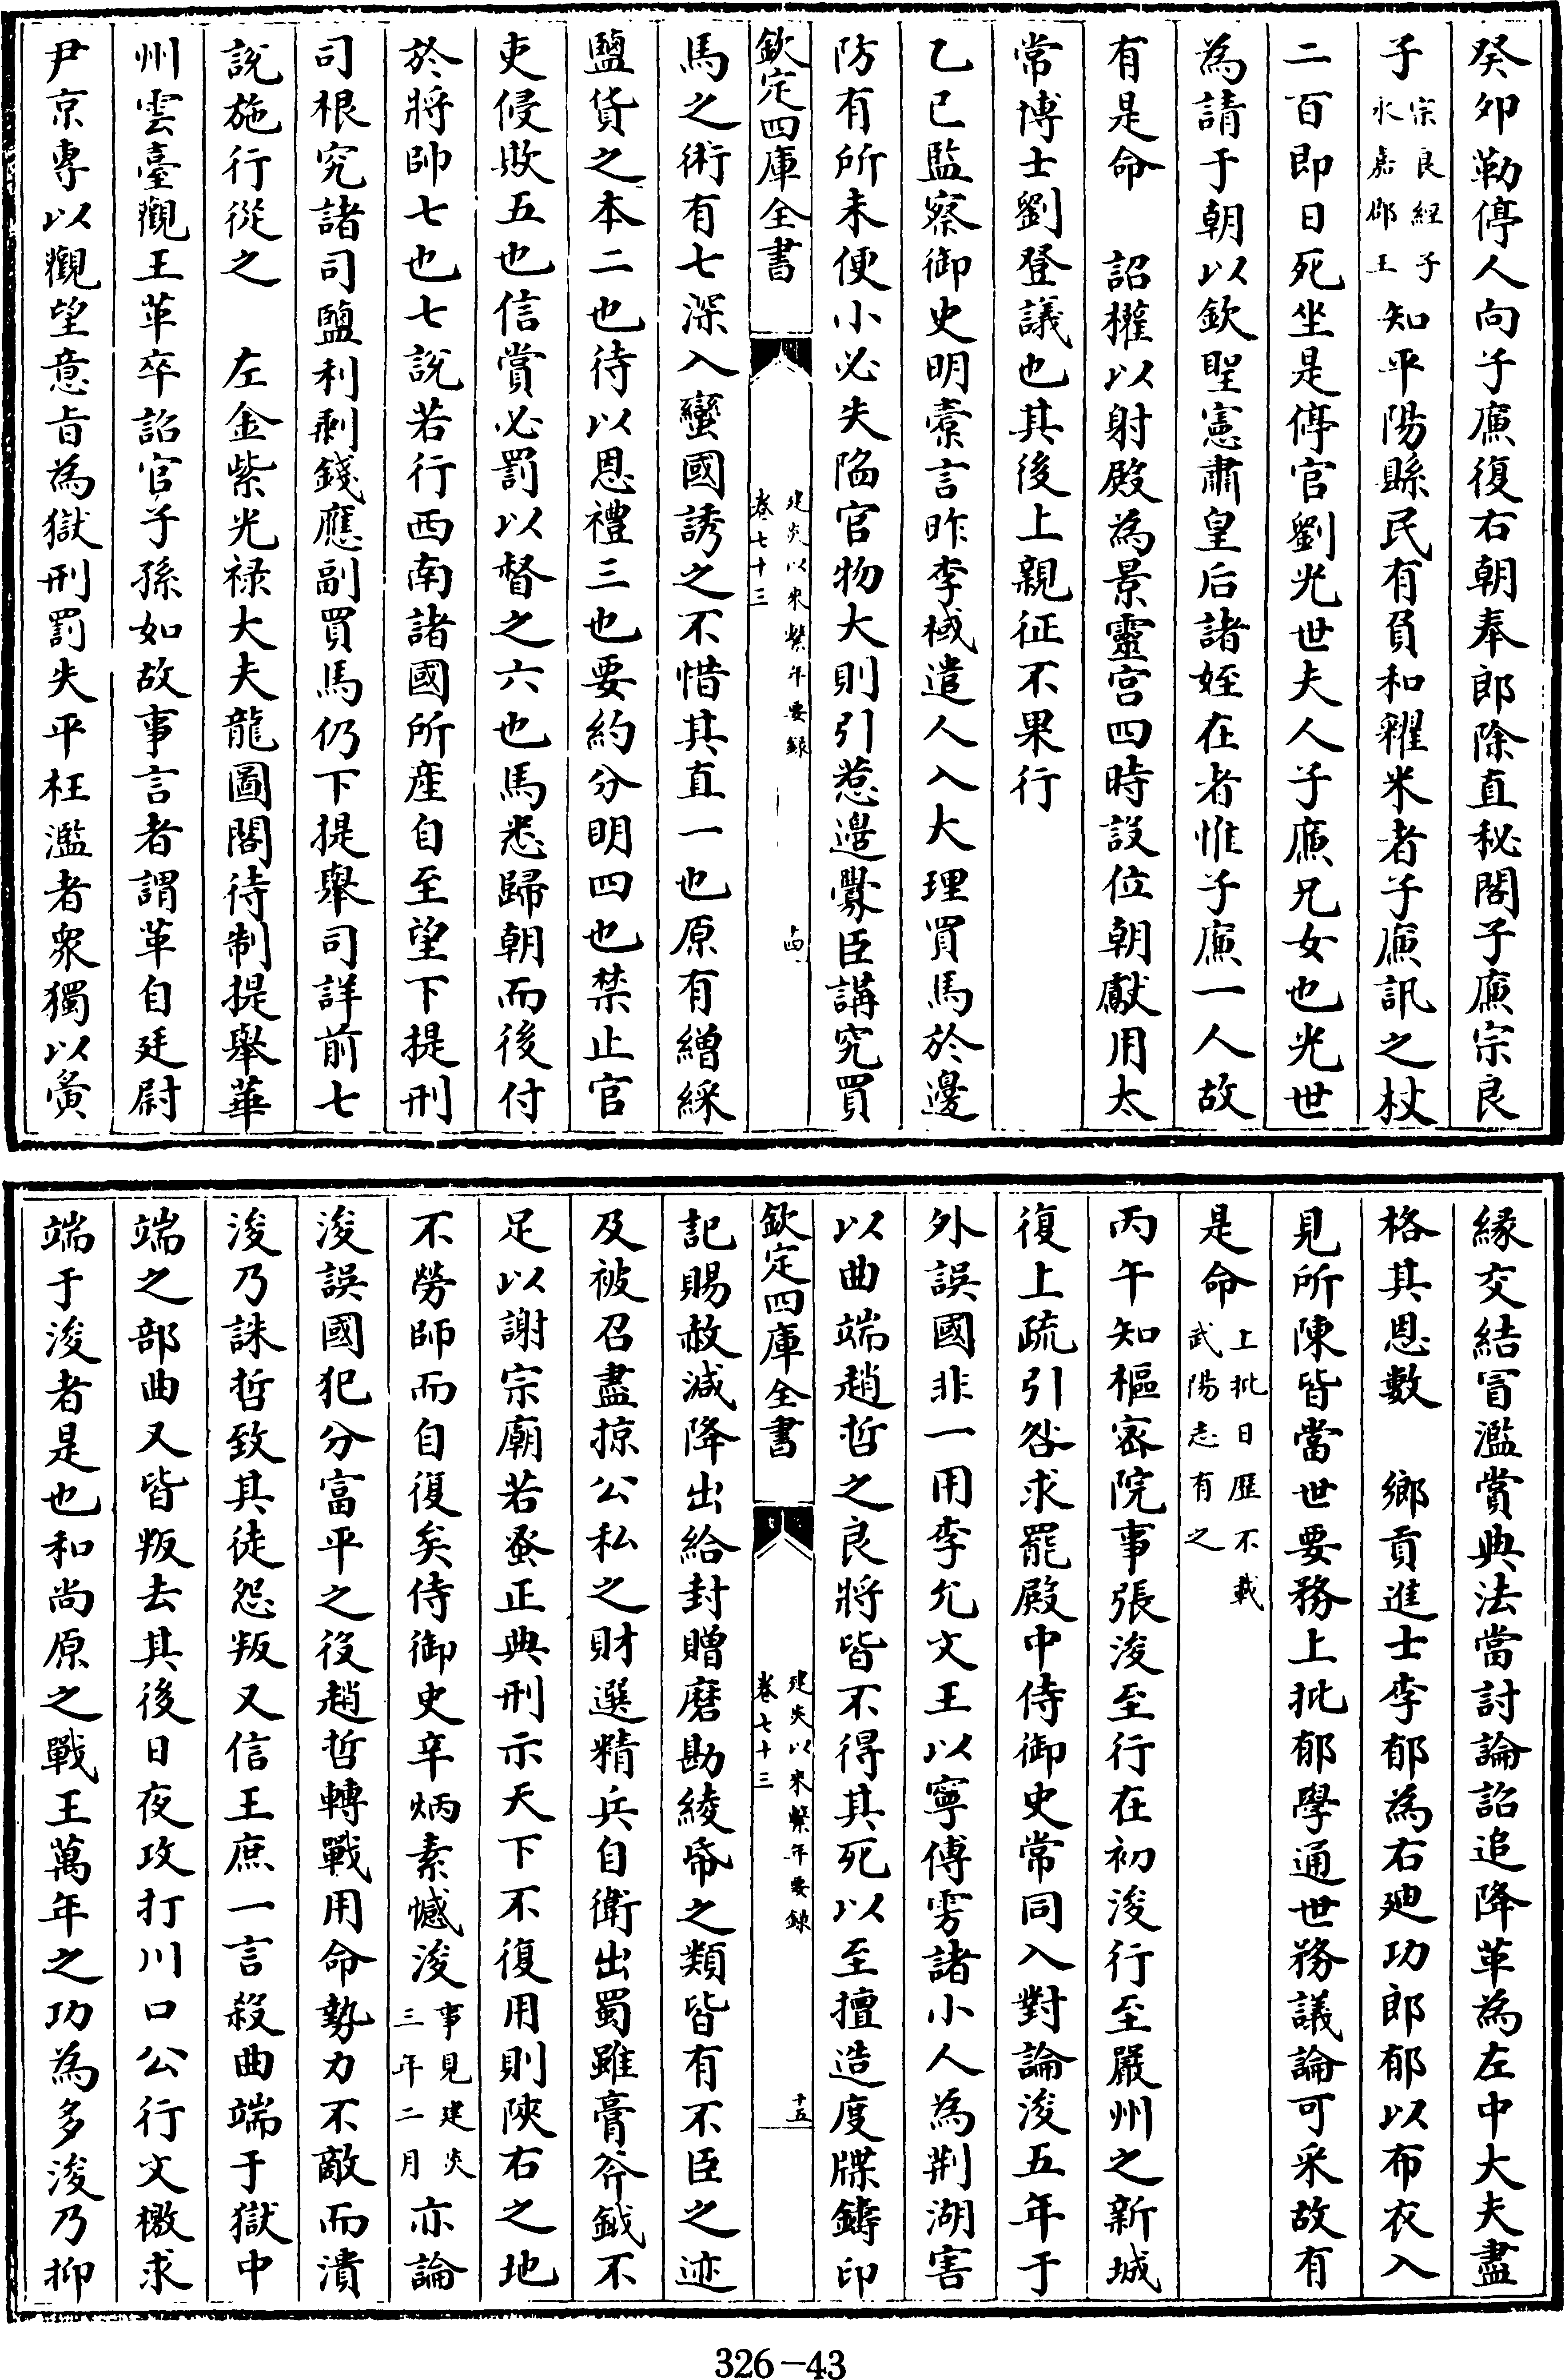 癸夘勒停人向子廙復右朝奉郎除直秘閣子廙宗良
子宗良經子永嘉郡王知平陽縣民有負和糴米者子廙訊之杖
二百即日死坐是停官劉光世夫人子廙兄女也光世
為請于朝以欽聖憲肅皇后諸姪在者惟子廙一人故
有是命　詔權以射殿為景靈宮四時設位朝獻用太
常博士劉登議也其後上親征不果行
乙巳監察御史明橐言昨李棫遣人入大理買馬於邊
防有所未便小必失陷官物大則引惹邊釁臣講究買
欽定四庫全書
建炎以來繫年要録
卷七十三
十四
馬之術有七深入蠻國誘之不惜其直一也原有繒綵
鹽貨之本二也待以恩禮三也要約分明四也禁止官
吏侵欺五也信賞必罰以督之六也馬悉歸朝而後付
於將帥七也七說若行西南諸國所產自至望下提刑
司根究諸司鹽利剩錢應副買馬仍下提舉司詳前七
說施行從之　左金紫光禄大夫龍圖閣待制提舉華
州雲臺觀王革卒詔官子孫如故事言者謂革自廷尉
尹京專以觀望意旨為獄刑罰失平枉濫者衆獨以夤
緣交結冒濫賞典法當討論詔追降革為左中大夫盡
格其恩數　鄉貢進士李郁為右廸功郎郁以布衣入
見所陳皆當世要務上批郁學通世務議論可采故有
是命上批日歷不載武陽志有之
丙午知樞密院事張浚至行在初浚行至嚴州之新城
復上疏引咎求罷殿中侍御史常同入對論浚五年于
外誤國非一用李允文王以寧傅雱諸小人為荆湖害
以曲端趙哲之良將皆不得其死以至擅造度牒鑄印
欽定四庫全書
建炎以來繫年要録
卷七十三
十五
記賜赦減降出給封贈磨勘綾帋之類皆有不臣之迹
及被召盡掠公私之財選精兵自衛出蜀雖膏斧鉞不
足以謝宗廟若蚤正典刑示天下不復用則陝右之地
不勞師而自復矣侍御史辛炳素憾浚事見建炎三年二月亦論
浚誤國犯分富平之役趙哲轉戰用命勢力不敵而潰
浚乃誅哲致其徒怨叛又信王庶一言殺曲端于獄中
端之部曲又皆叛去其後日夜攻打川口公行文檄求
端于浚者是也和尚原之戰王萬年之功為多浚乃抑
326-43